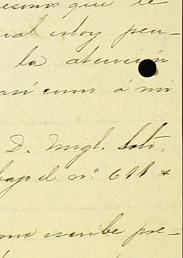 que te
cual estoy pen-
la atención
así como a mi
D. Migl. Soto,
bajo el nº 611 &
como escribe pre-